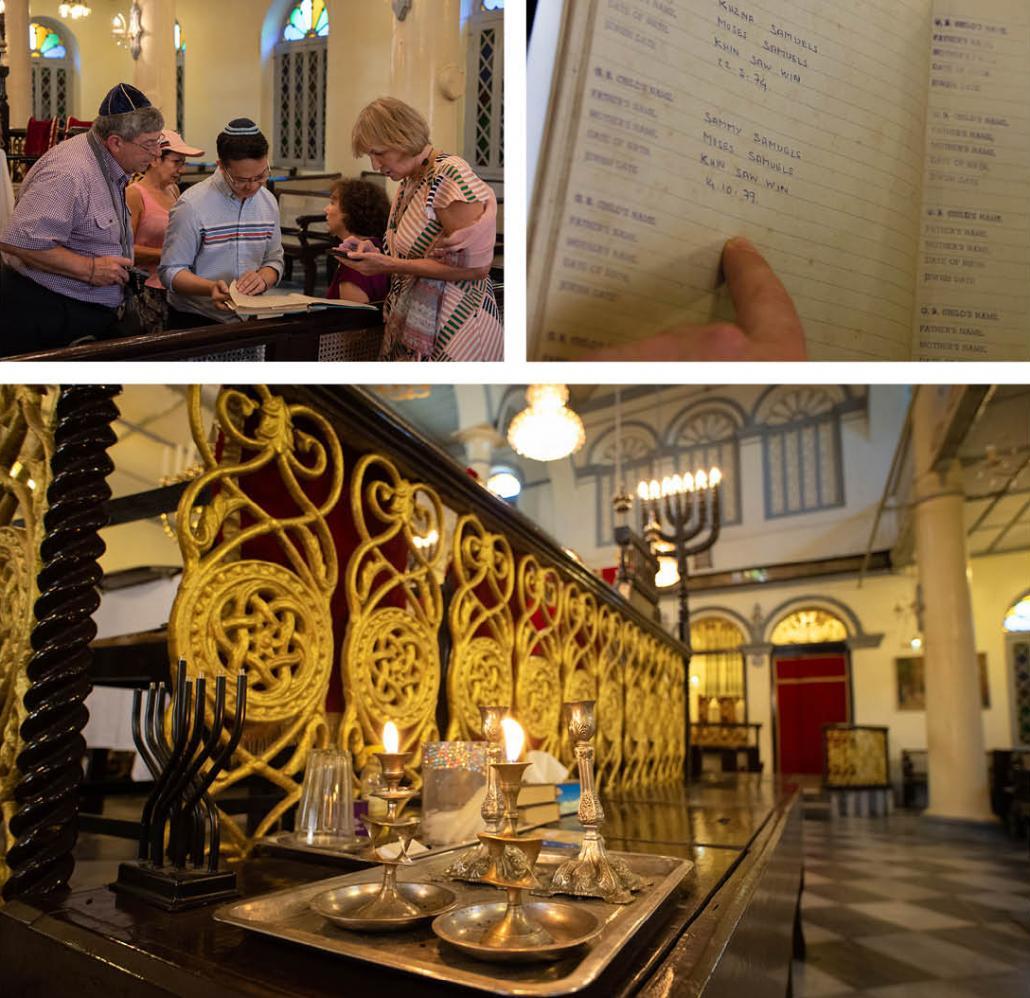 KHZNA SAMUELS
MOSES SAMUELS
KHIN SAW WIN
22. 3. 74.
G. B. CHILD'S NAME.
FATHER'S NAME.
MOTHER'S NAME.
DATE OF BIRTH.
JEWISH DATE.
SAMMY SAMUELS
MOSES SAMUELS
KHIN SAW WIN
4. 10. 79.
G. B. CHILD'S NAME.
FATHER'S NAME.
MOTHER'S NAME.
DATE OF BIRTH.
JEWISH DATE.
G. B. CHILD'S NAME.
G. B. CHILD'S NAME.
FATHER'S NAME.
G. B. CHILD'S NAME.
FATHER'S NAME.
MOTHER'S NAME.
DATE OF BIRTH.
JEWISH DATE.
G. B. CHILD'S NAME.
FATHER'S NAME.
MOTHER'S NAME.
DATE OF BIRTH.
JEWISH DATE.
G. B. CHILD'S NAME.
FATHER'S NAME.
MOTHER'S NAME.